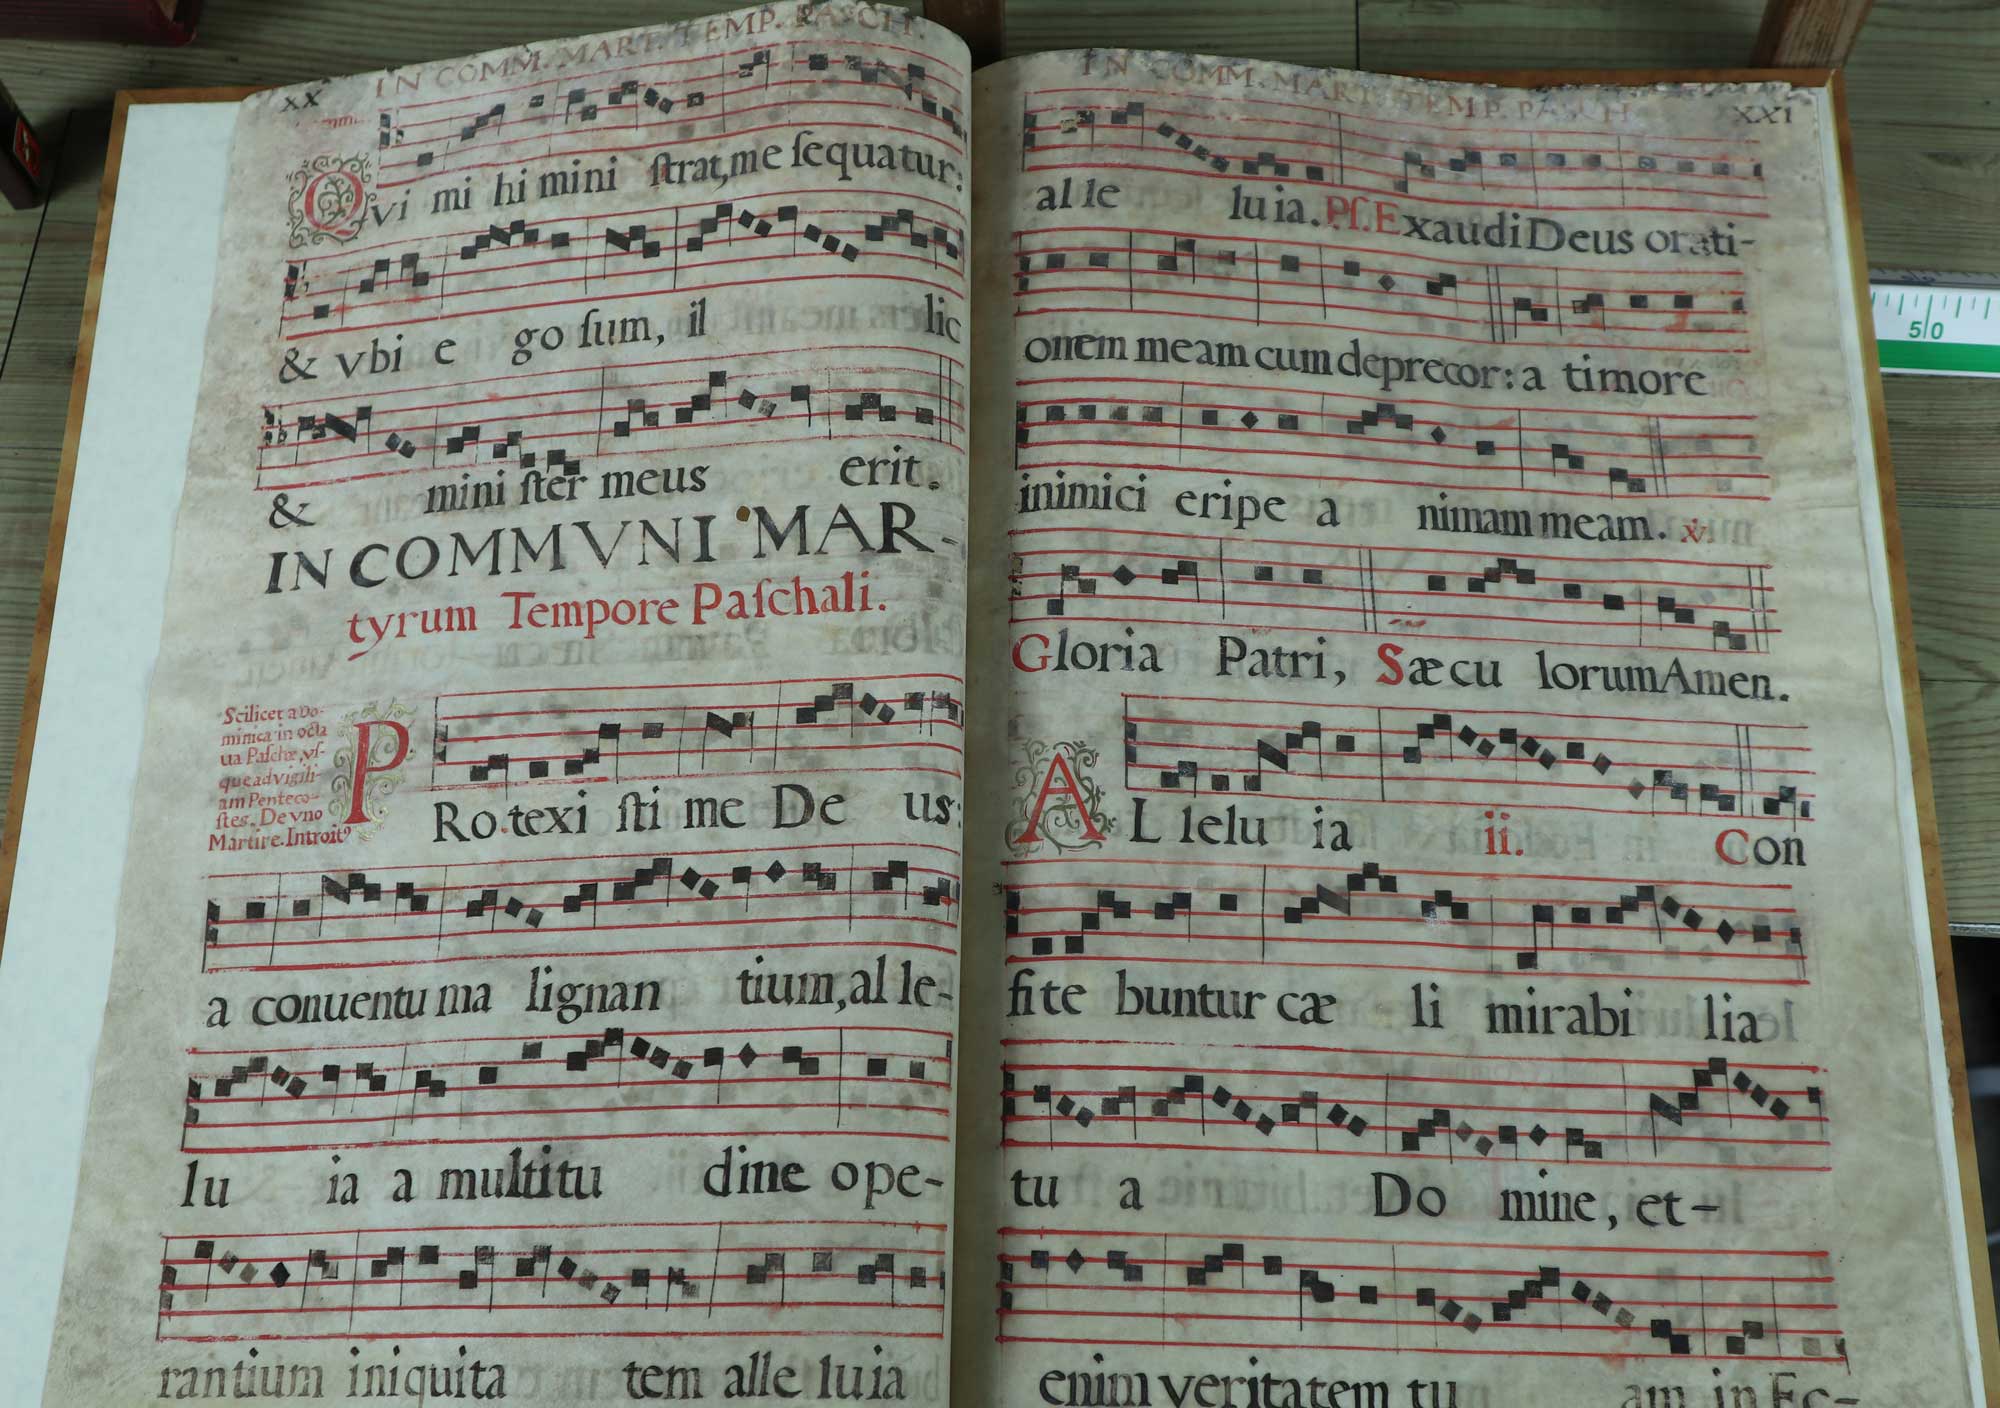 IN COMM. MART. TEMP. PASCH.
xx
QVi mi hi mini ſtrat, me ſequatur:
& vbi e go ſum, il lic
& mini ſter meus erit.
IN COMMVNI MAR-
tyrum Tempore Paſchali.
Scilicet a Do-
minica in octa
ua Paſchæ, vſ-
que ad vigili-
am Penteco-
ſtes. De vno
Martire. Introit⁹
PRo.texi ſti me De us:
a conuentu ma lignan tium, al le-
lu ia a multitu dine ope-
rantium iniquita tem alle luia
IN COMM. MART. TEMP. PASCH.
xxi
al le lu ia. Pſ. Exaudi Deus orati-
onem meam cum deprecor: a timore
inimici eripe a nimam meam. ℣.
Gloria Patri, Sæcu lorum Amen.
AL lelu ia ii. Con
fite buntur cæ li mirabi lia
tu a Do mine, et-
enim veritatem tu am in Ec-
50